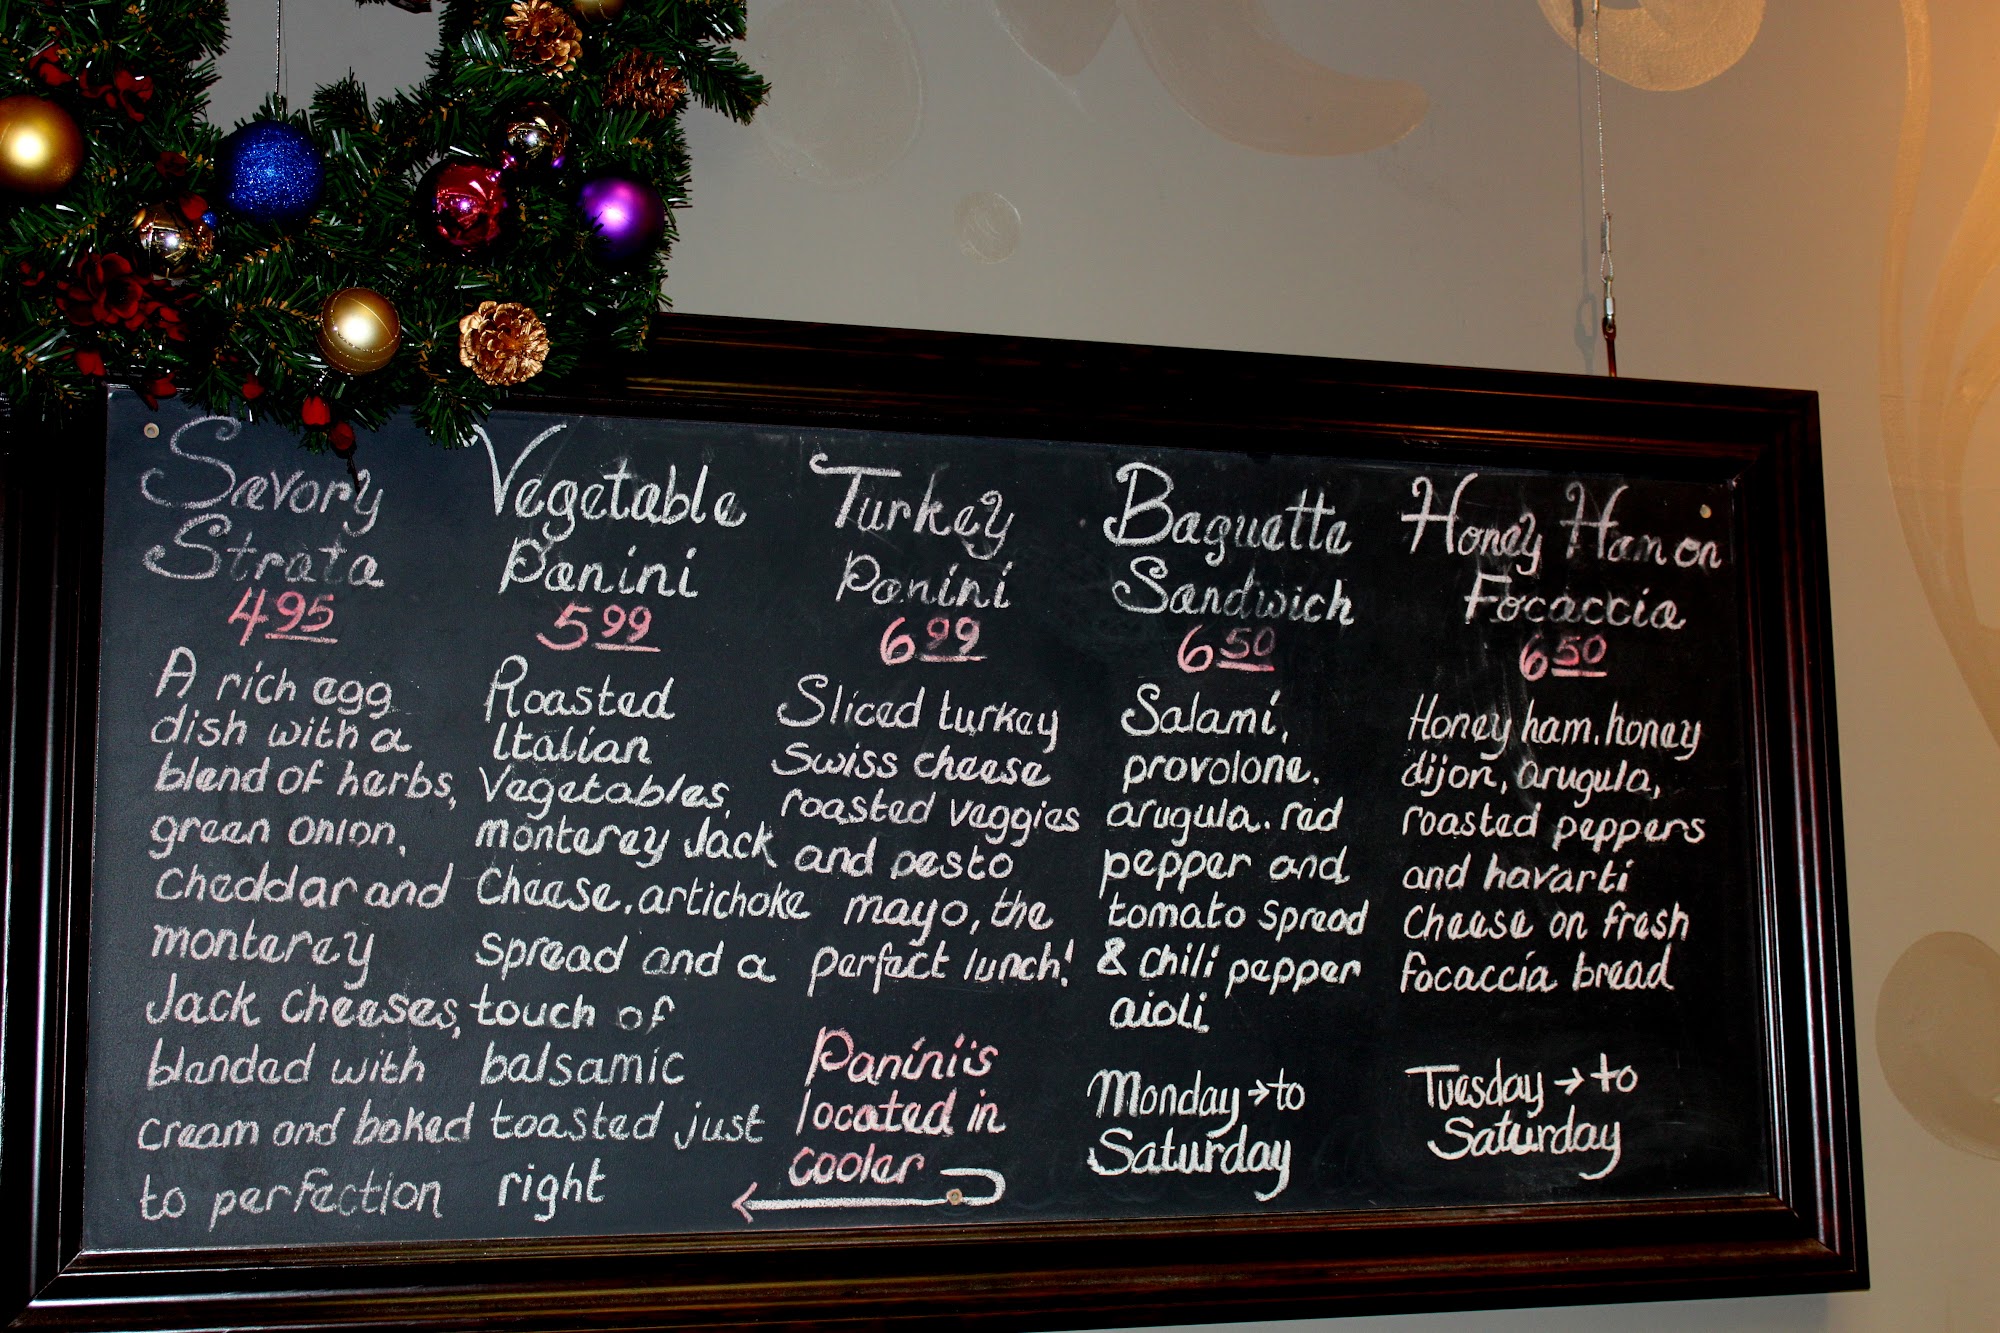 Savory
Strata
4.95
A rich egg
dish with a
blend of herbs,
green onion,
cheddar and
monterey
Jack cheeses,
blended with
cream and baked
to perfection
Vegetable
Panini
5.99
Roasted
Italian
Vegetables,
monterey Jack
Cheese, artichoke
spread and a
touch of
balsamic
toasted just
right
Turkey
Panini
6.99
Sliced turkey
swiss cheese
roasted veggies
and pesto
mayo, the
perfect lunch!
Panini's
located in
cooler
Baguette
Sandwich
6.50
Salami,
provolone,
arugula, red
pepper and
tomato spread
& chili pepper
aioli
Monday → to
Saturday
Honey Ham on
Focaccia
6.50
Honey ham, honey
dijon, arugula,
roasted peppers
and havarti
cheese on fresh
focaccia bread
Tuesday → to
Saturday